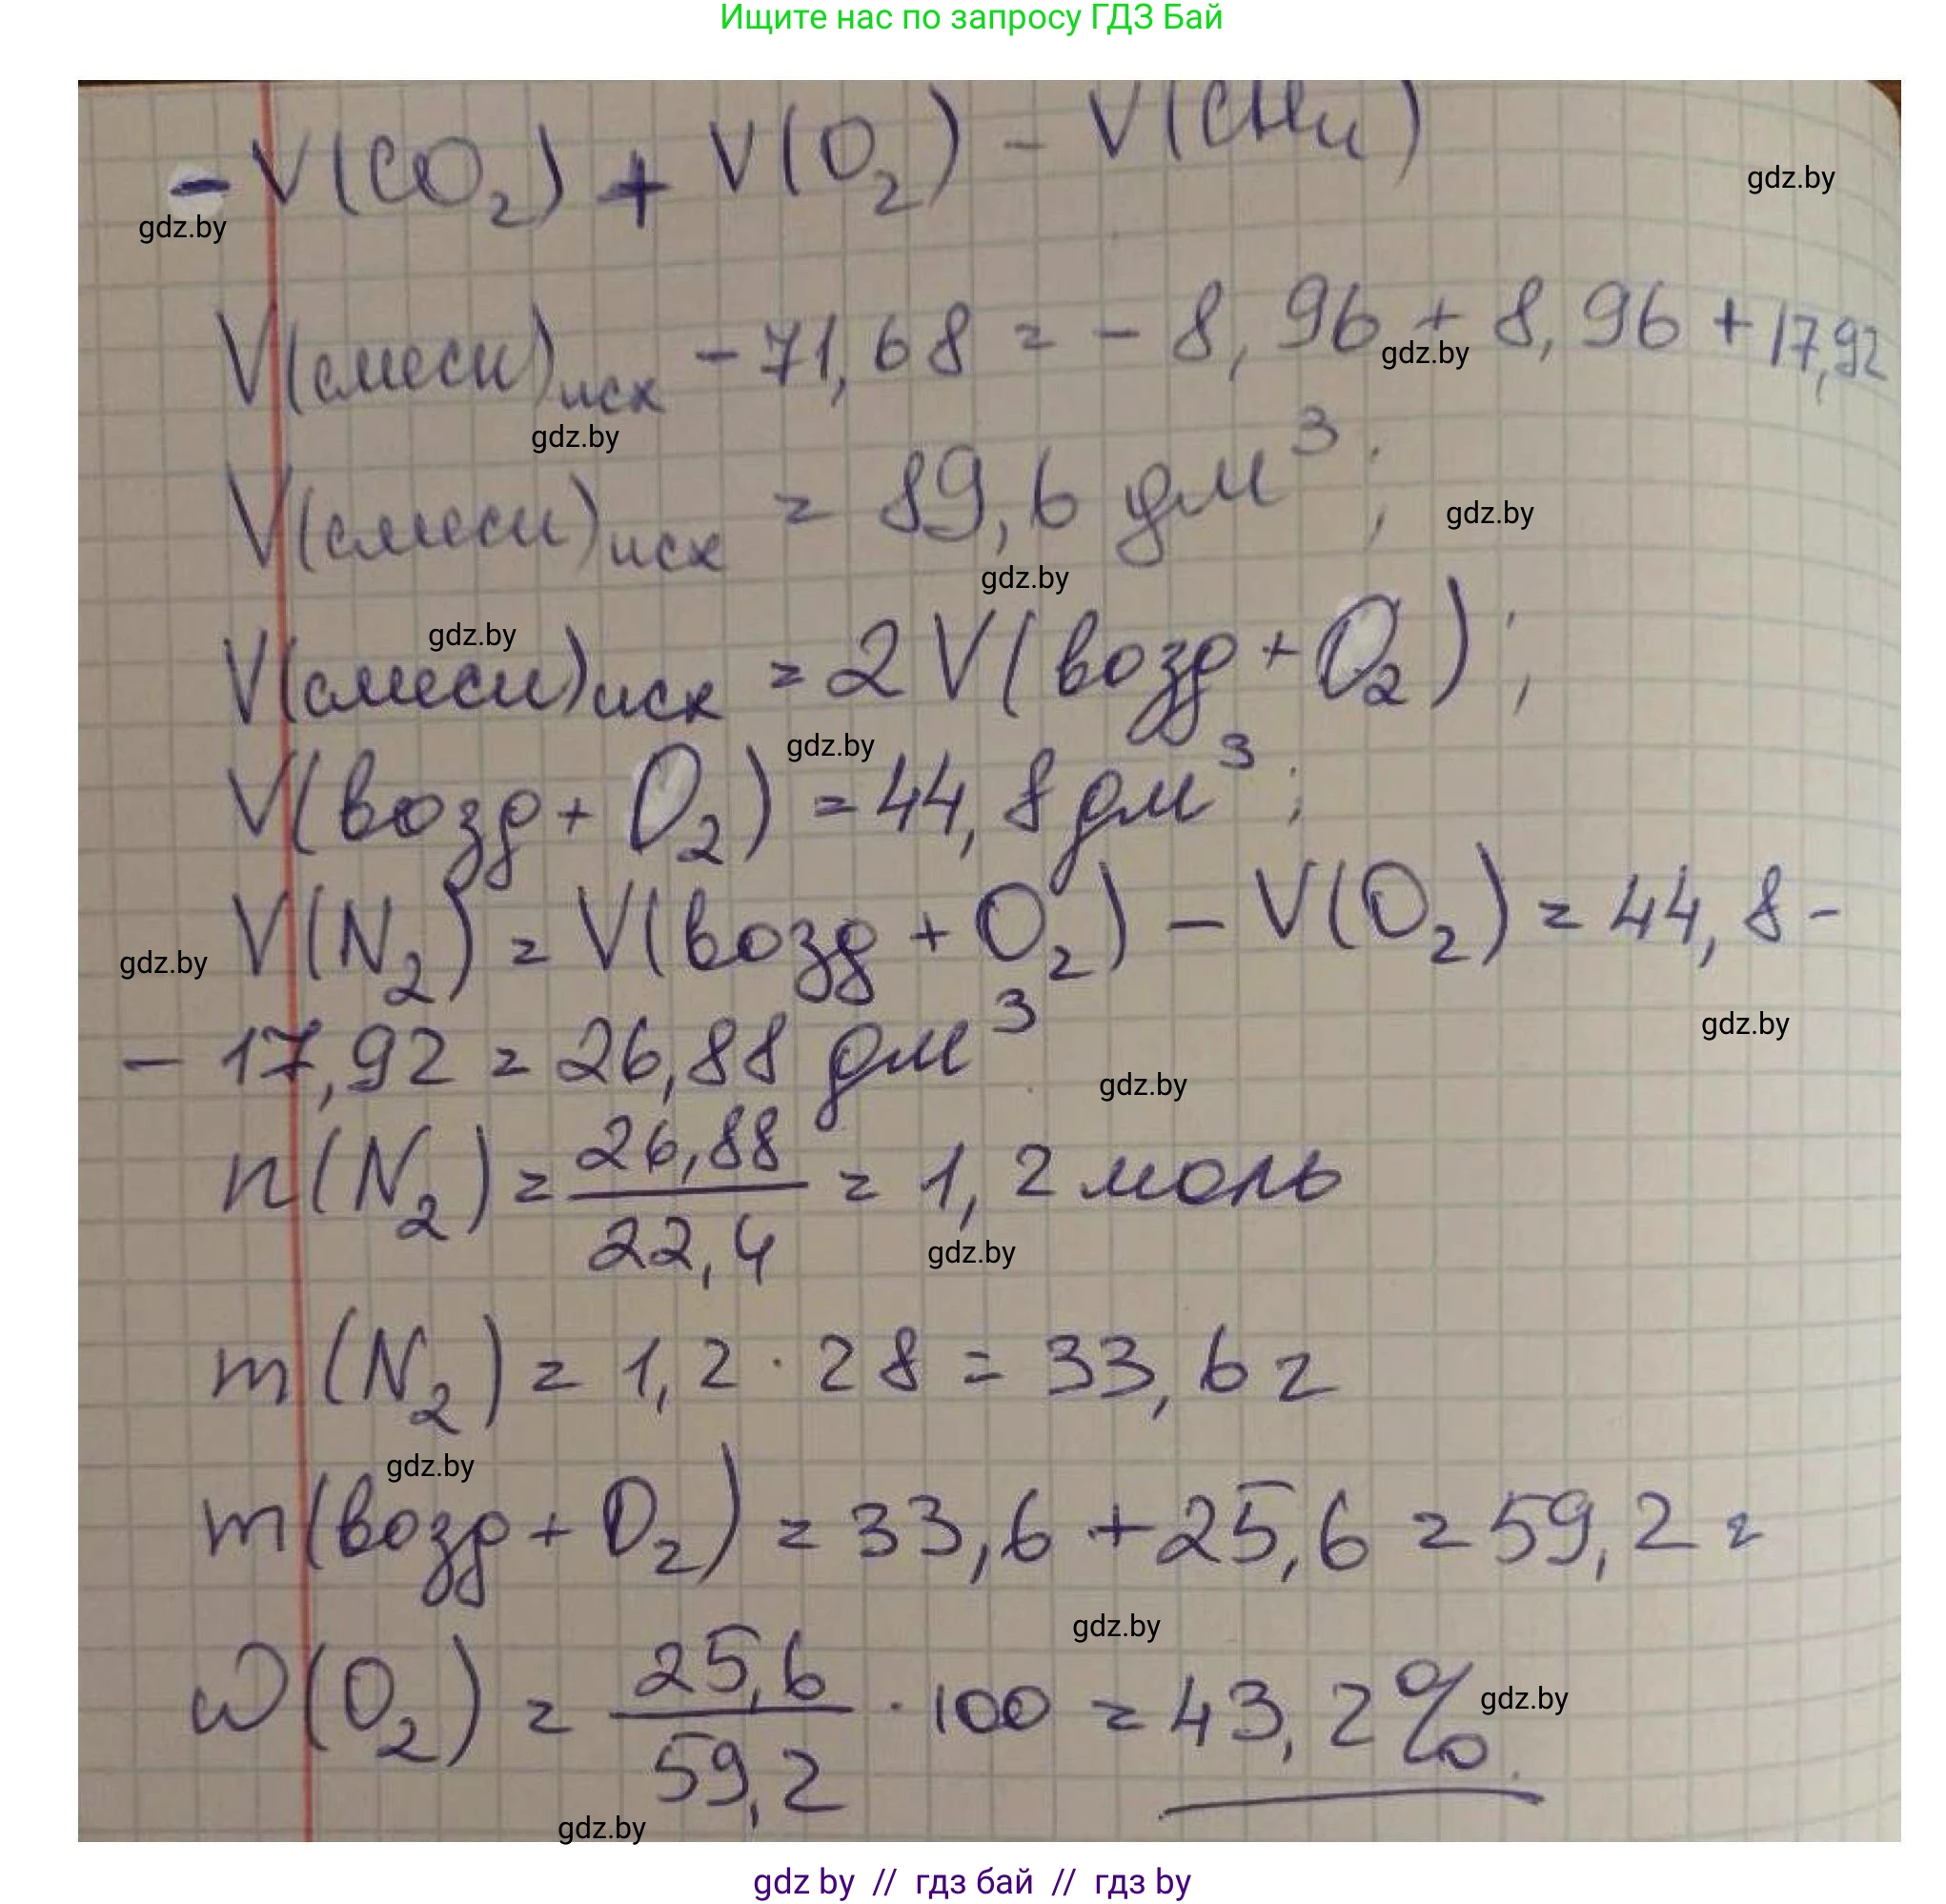 Ищите нас по запросу ГДЗ Бай
- V(CO₂) + V(O₂) - V(CH₄)
gdz.by
gdz.by
V(смеси)исх - 71,68 = - 8,96 + 8,96 + 17,92
gdz.by
gdz.by
V(смеси)исх = 89,6 дм³;
gdz.by
gdz.by
V(смеси)исх = 2V(возд + O₂);
gdz.by
V(возд + O₂) = 44,8 дм³;
gdz.by
V(N₂) = V(возд + O₂) - V(O₂) = 44,8 -
gdz.by
- 17,92 = 26,88 дм³
gdz.by
gdz.by
n(N₂) = 26,88 / 22,4 = 1,2 моль
gdz.by
m(N₂) = 1,2 · 28 = 33,6 г
gdz.by
m(возд + O₂) = 33,6 + 25,6 = 59,2 г
gdz.by
ω(O₂) = 25,6 / 59,2 · 100 = 43,2%.
gdz.by
gdz.by
gdz by // гдз бай // гдз by